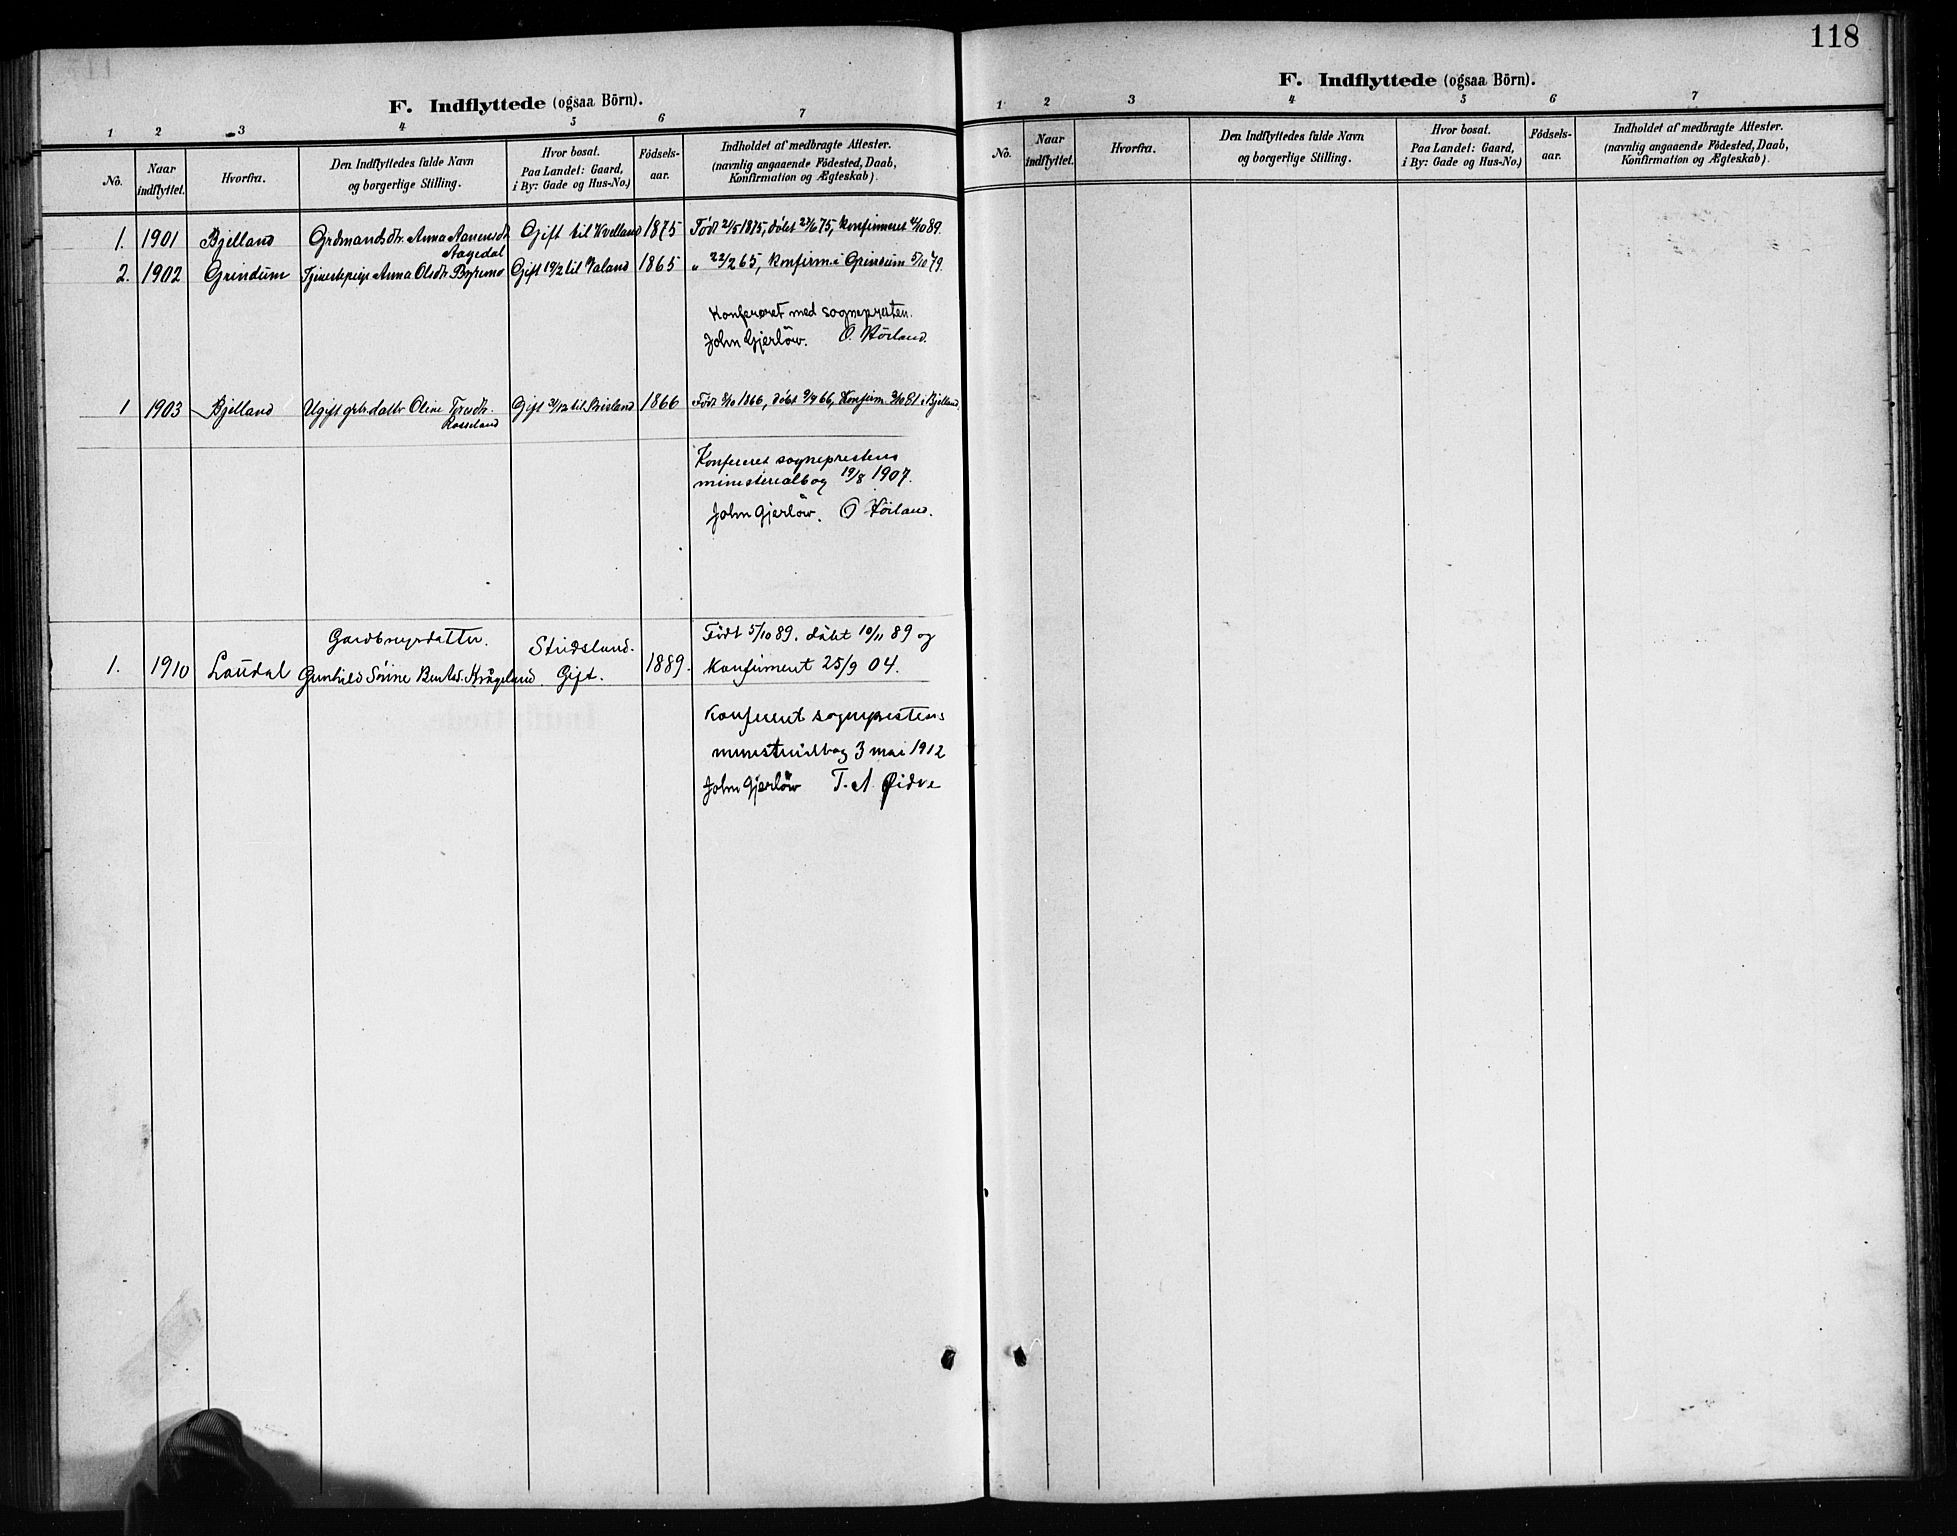 118
F. Indflyttede (ogsaa Börn).
1 2 3 4 5 6 7
No.
Naar indflyttet.
Hvorfra.
Den Indflyttedes fulde Navn
og borgerlige Stilling.
Hvor bosat.
Paa Landet: Gaard,
i By: Gade og Hus-No.)
Födsels-
aar.
Indholdet af medbragte Attester.
(navnlig angaaende Födested, Daab,
Konfirmation og Ægteskab).
1. 1901 Bjelland Grdmandsdtr. Anna Aanensdtr. Gift til Kvelland 1875 Födt 2/5 1875, döbt 27/6 75, konfirmeret 4/10 89.
Aagedal
2. 1902 Grindum Tjenestepige Anna Olsdtr. Byremo Gift 19/2 til Valand 1865 " 22/2 65, konfirm. i Grindum 5/10 79.
Konfereret med sognepresten.
John Gjerlöw. O. Körland.
1 1903 Bjelland Ugift grbr.datter Oline Toresdtr. Gift 3/12 til 1866 Födt 1866, döbt 66, Konfirm. 81 i Bjelland.
Rosseland
Konfereret sogneprestens
ministerialbog 19/8 1907.
John Gjerlöw. O Körland.
Gardbrugerdatter. Stridsland. Födt 5/10 89. döbt 10/11 89 og
1. 1910 Laudal Gunhild Sörine Bentsd. Krågeland. Gift. 1889. konfirmeret 25/9 04.
Konfereret sogneprestens
ministerialbog 3 mai 1912
John Gjerlöw T. A. Øidne
F. Indflyttede (ogsaa Börn).
1 2 3 4 5 6 7
No.
Naar
indflyttet.
Hvorfra.
Den Indflyttedes fulde Navn
og borgerlige Stilling.
Hvor bosat.
Paa Landet: Gaard,
i By: Gade og Hus-No.)
Födsels-
aar.
Indholdet af medbragte Attester.
(navnlig angaaende Födested, Daab,
Konfirmation og Ægteskab).